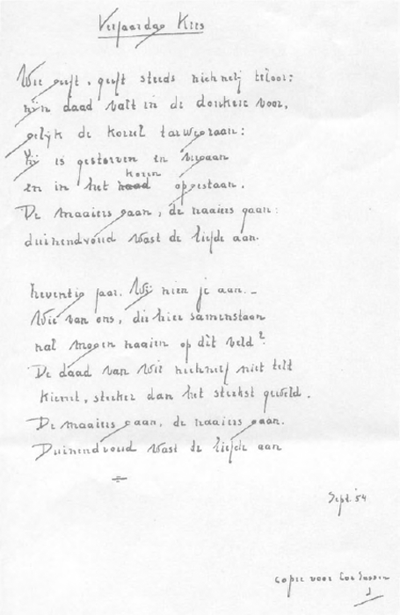 Verjaardag Kees
Wie geeft, geeft steeds zichzelf teloor:
zijn daad valt in de donkere voor,
gelijk de korrel tarwegraan:
hij is gestorven en vergaan
en in het koren opgestaan.
De maaiers gaan, de zaaiers gaan:
duizendvoud wast de liefde aan.
Zeventig jaar. Wij zien je aan. –
Wie van ons, die hier samenstaan
zal mogen zaaien op dit veld?
De daad van wie zichzelf niet telt
kiemt, sterker dan het sterkst geweld.
De maaiers gaan, de zaaiers gaan.
Duizendvoud wast de liefde aan
Sept. '54
copie voor Cor